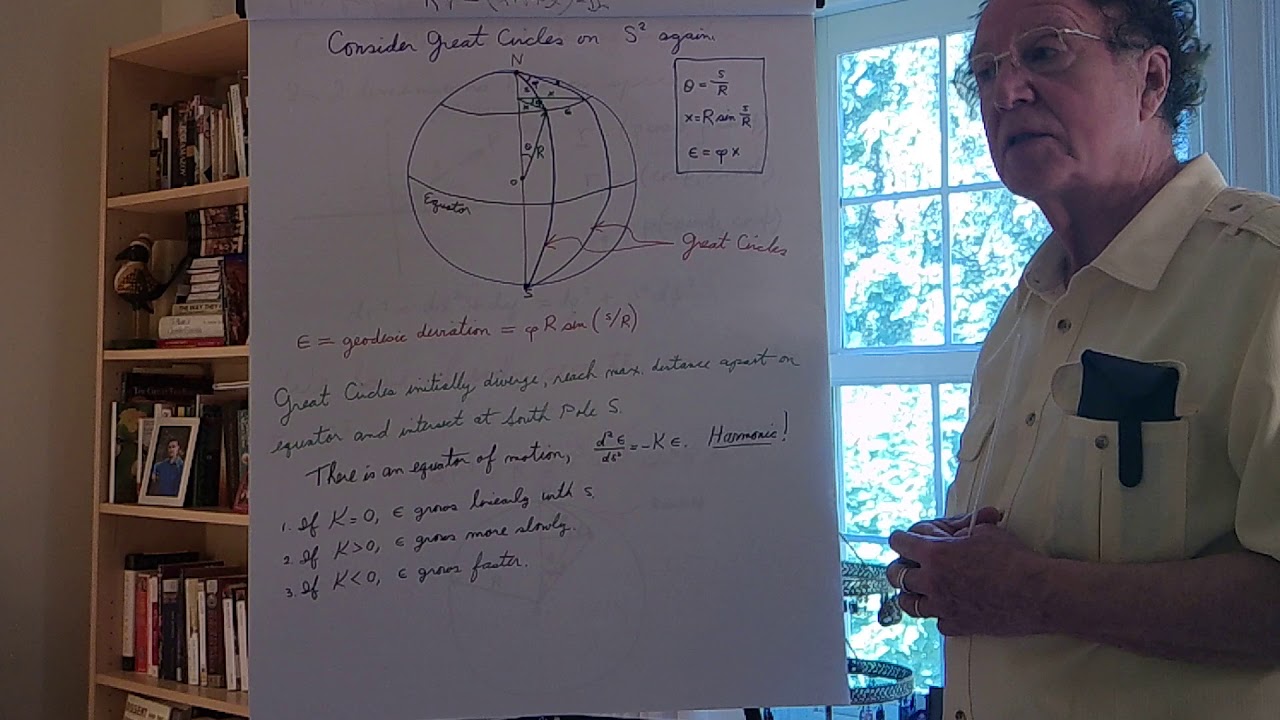 Consider Great Circles on S² again.
N
θ = s/R
x = R sin s/R
ε = φ x
θ
R
O
Equator
Great Circles
S
ε = geodesic deviation = φ R sin (s/R)
Great Circles initially diverge, reach max. distance apart on
equator and intersect at South Pole S.
There is an equator of motion, d²ε/ds² = -K ε. Harmonic!
1. If K = 0, ε grows linearly with s.
2. If K > 0, ε grows more slowly.
3. If K < 0, ε grows faster.